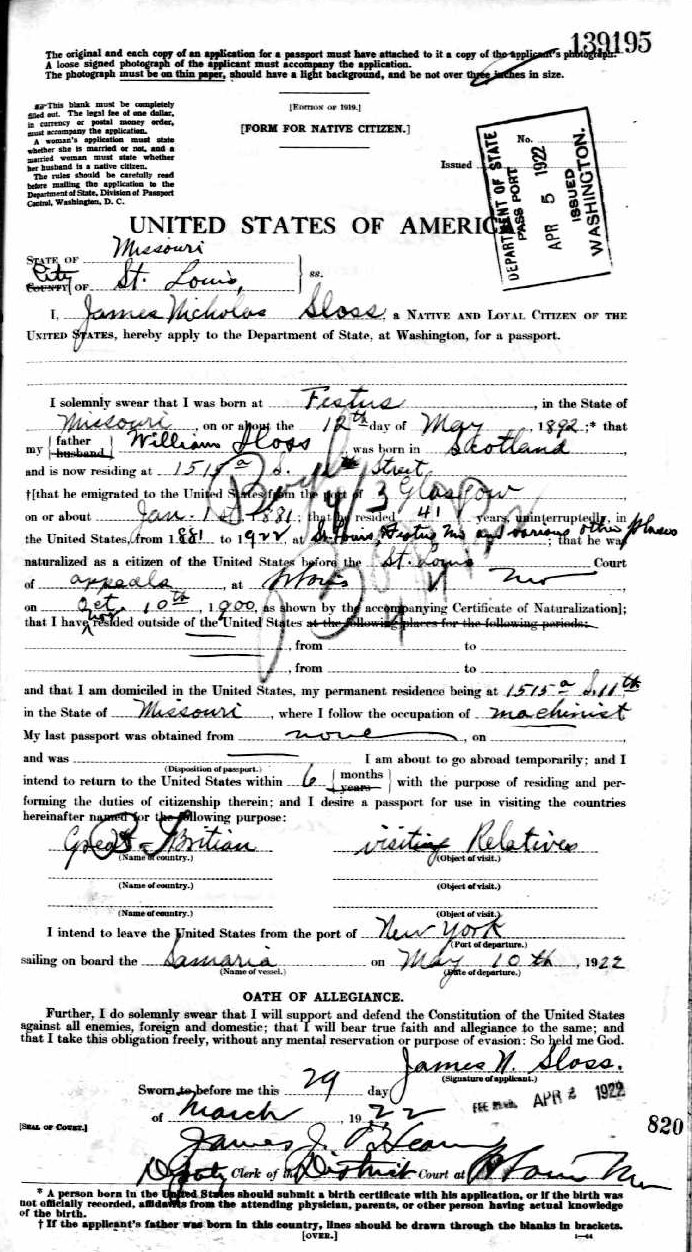 139195
The original and each copy of an application for a passport must have attached to it a copy of the applicant's photograph.
A loose signed photograph of the applicant must accompany the application.
The photograph must be on thin paper, should have a light background, and be not over three inches in size.
This blank must be completely
filled out. The legal fee of one dollar,
in currency or postal money order,
must accompany the application.
A woman's application must state
whether she is married or not, and a
married woman must state whether
her husband is a native citizen.
The rules should be carefully read
before mailing the application to the
Department of State, Division of Passport
Control, Washington, D. C.
[EDITION OF 1919.]
[FORM FOR NATIVE CITIZEN.]
No.
Issued
DEPARTMENT OF STATE
PASS PORT
APR 5 1922
ISSUED
WASHINGTON.
UNITED STATES OF AMERICA
STATE OF Missouri
City
COUNTY OF St. Louis, ss.
I, James Nicholas Sloss, a NATIVE AND LOYAL CITIZEN OF THE
UNITED STATES, hereby apply to the Department of State, at Washington, for a passport.
I solemnly swear that I was born at Festus, in the State of
Missouri, on or about the 12th day of May, 1892;* that
my {father husband} William Sloss was born in Scotland,
and is now residing at 1515a S. 11th Street
†[that he emigrated to the United States from the port of Glasgow
on or about Jan. 1st 1881; that he resided 41 years, uninterruptedly, in
the United States, from 1881 to 1922, at St. Louis, Festus Mo and various other places; that he was
naturalized as a citizen of the United States before the St. Louis Court
of appeals, at St Louis Mo
on Oct 10th, 1900, as shown by the accompanying Certificate of Naturalization];
that I have not resided outside of the United States at the following places for the following periods:
, from to
, from to
and that I am domiciled in the United States, my permanent residence being at 1515a S. 11th
in the State of Missouri, where I follow the occupation of machinist
My last passport was obtained from none, on
and was I am about to go abroad temporarily; and I
(Disposition of passport.)
intend to return to the United States within 6 {months years} with the purpose of residing and per-
forming the duties of citizenship therein; and I desire a passport for use in visiting the countries
hereinafter named for the following purpose:
Great Britian visiting Relatives
(Name of country.) (Object of visit.)
(Name of country.) (Object of visit.)
(Name of country.) (Object of visit.)
I intend to leave the United States from the port of New York
(Port of departure.)
sailing on board the Samaria on May 10th, 1922
(Name of vessel.) (Date of departure.)
OATH OF ALLEGIANCE.
Further, I do solemnly swear that I will support and defend the Constitution of the United States
against all enemies, foreign and domestic; that I will bear true faith and allegiance to the same; and
that I take this obligation freely, without any mental reservation or purpose of evasion: So held me God.
James N. Sloss.
(Signature of applicant.)
Sworn to before me this 29 day
of March, 1922
APR 2 1922
[SEAL OF COURT.]
820
James J.
Deputy Clerk of the District Court at St Louis Mo
* A person born in the United States should submit a birth certificate with his application, or if the birth was
not officially recorded, affidavits from the attending physician, parents, or other person having actual knowledge
of the birth.
† If the applicant's father was born in this country, lines should be drawn through the blanks in brackets.
[OVER.]